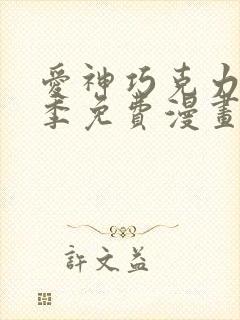 愛神巧克力
季免費漫畫
許文益